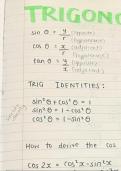 TRIGONO
sin θ = y/r (opposite) (hypotenuse)
cos θ = x/r (adjacent) (hypotenuse)
tan θ = y/x (opposite) (adjacent)
TRIG IDENTITIES:
sin²θ + cos²θ = 1
sin²θ = 1 - cos²θ
cos²θ = 1 - sin²θ
How to derive the cos
cos 2x = cos²x - sin²x